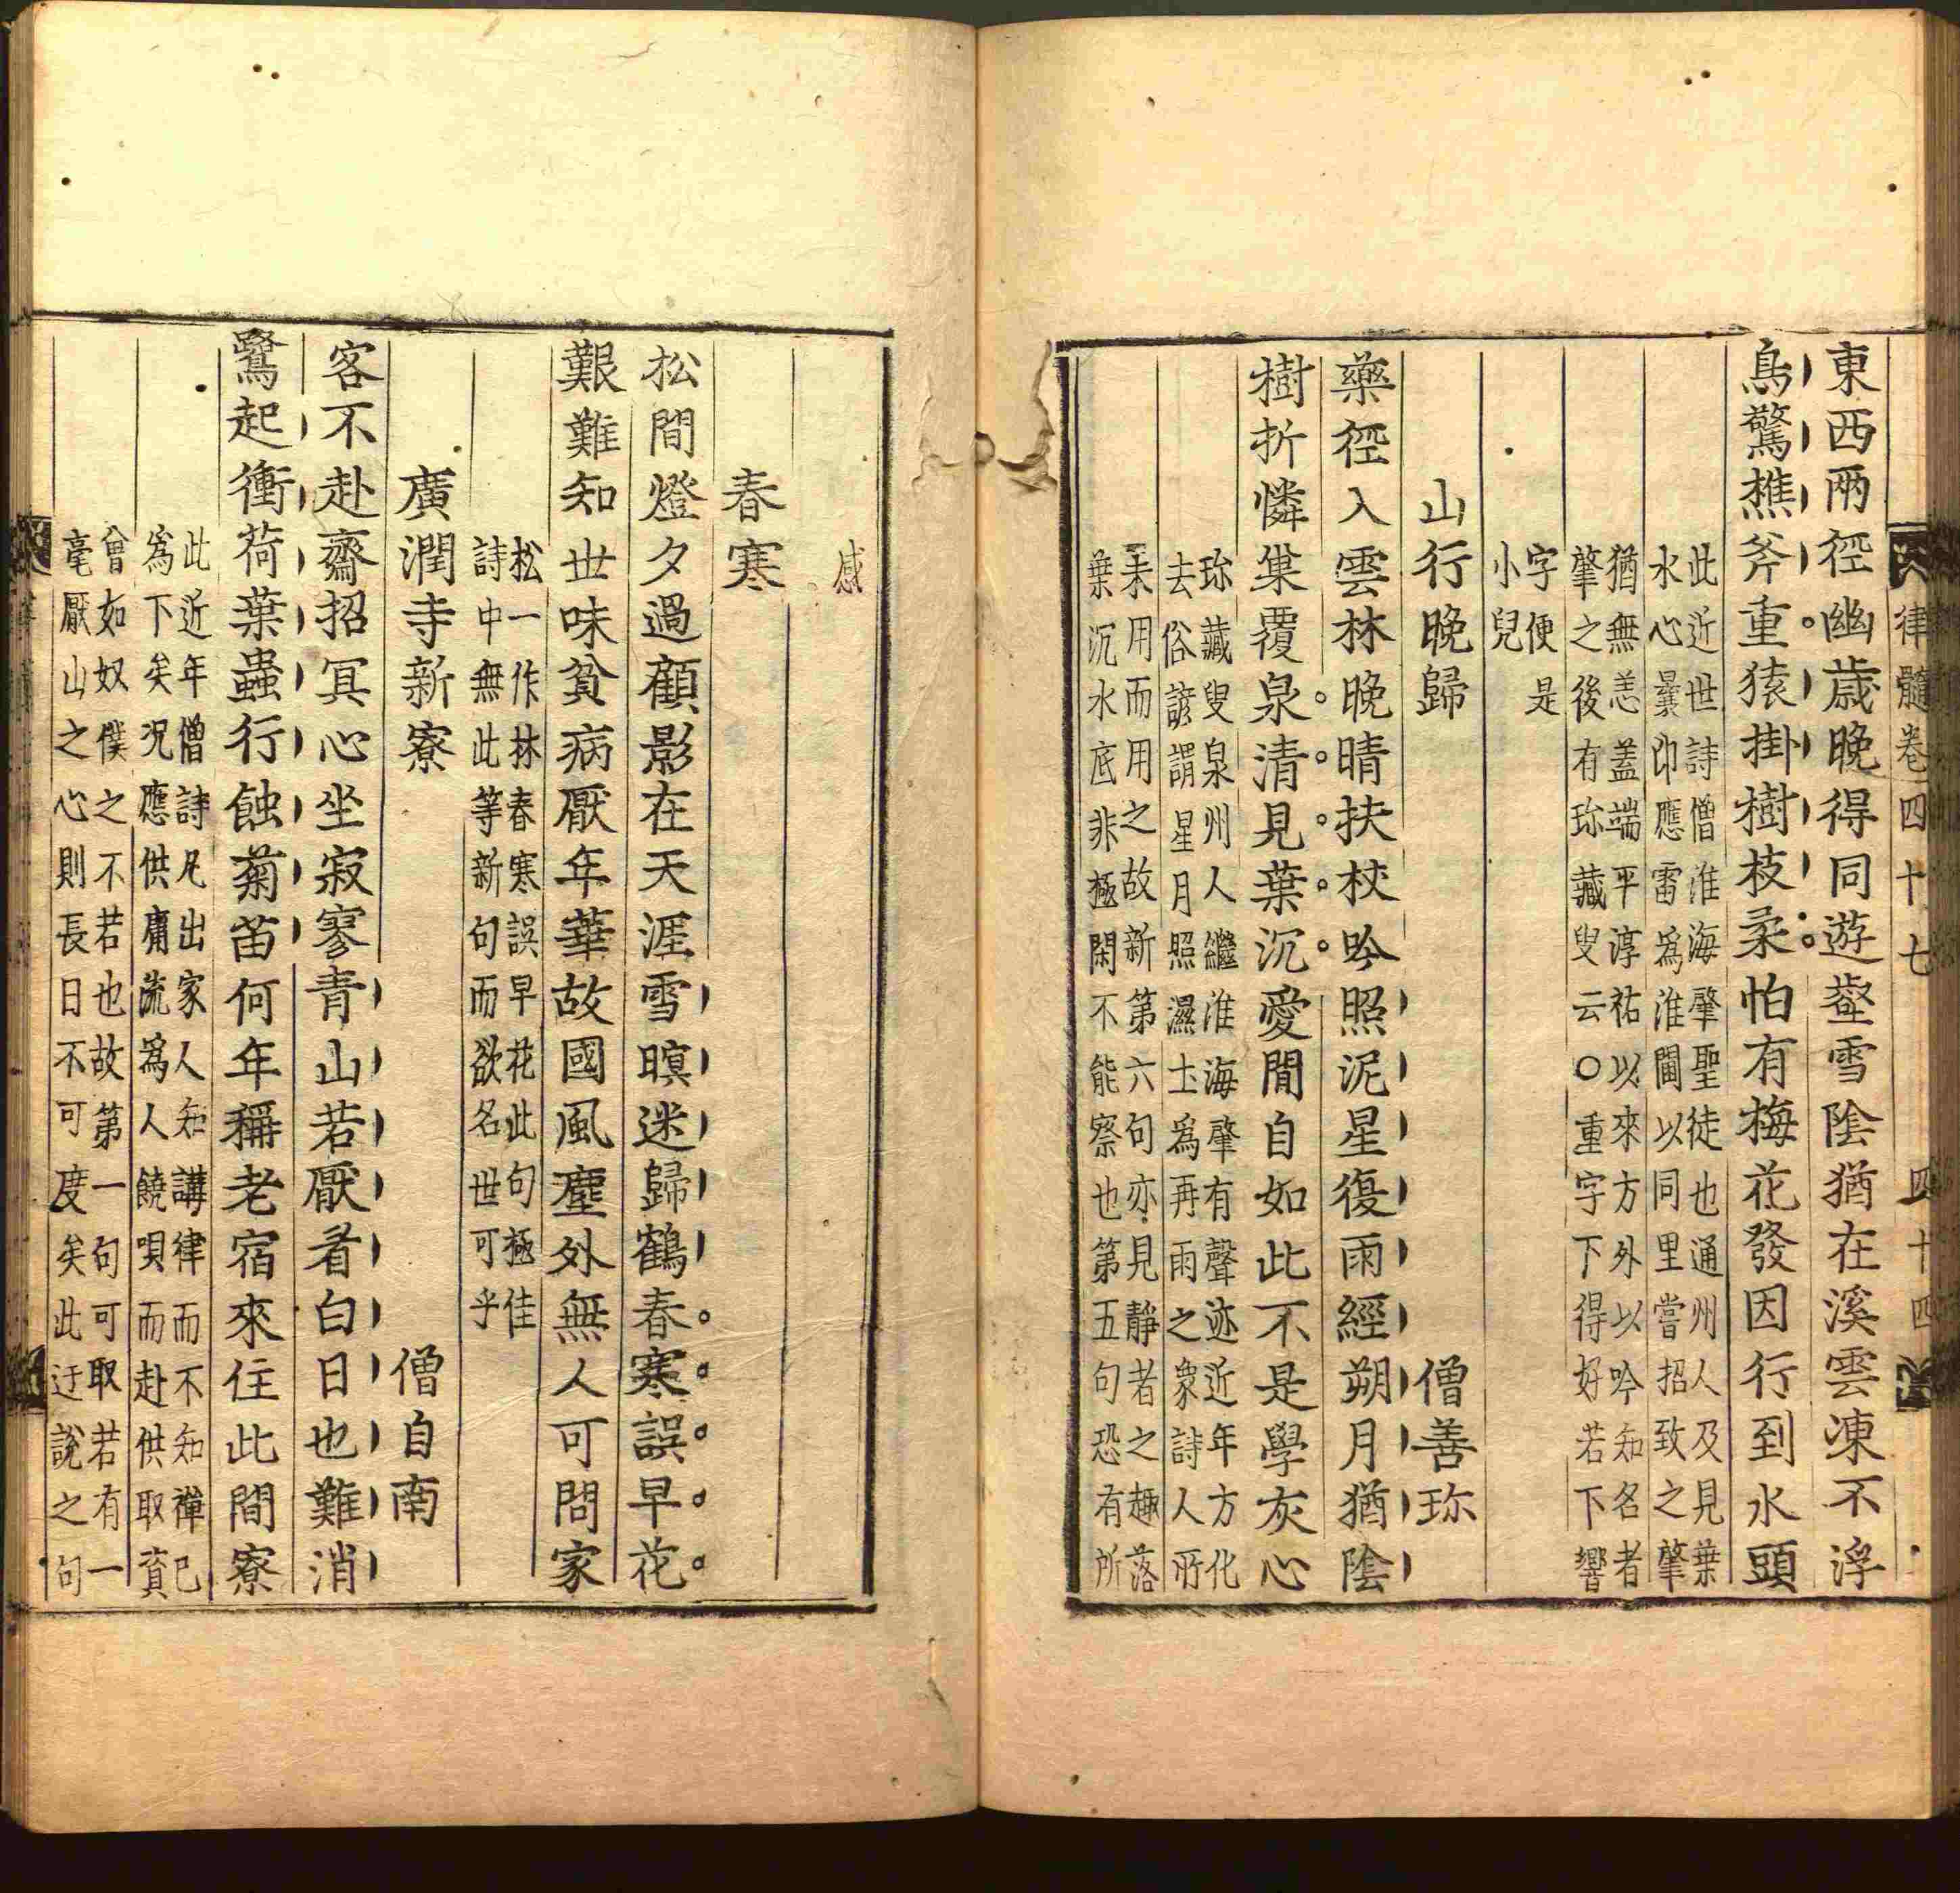 律髓卷四十七 四十四
東西兩徑幽歲晚得同遊壑雪陰猶在溪雲凍不浮
鳥驚樵斧重猿掛樹枝柔怕有梅花發因行到水頭
此近世詩僧淮海肇聖徒也通州人及見葉
水心曇印應雷爲淮閫以同里嘗招致之肇
猶無恙蓋端平淳祐以來方外以吟知名者
肇之後有珎藏叟云〇重字下得好若下響
字便是
小兒
山行晚歸 僧善珎
藥徑入雲林晚晴扶杖吟照泥星復雨經朔月猶陰
樹折憐巢覆泉清見葉沉愛閒自如此不是學灰心
珎藏叟泉州人繼淮海肇有聲迹近年方化
去俗諺謂星月照濕土爲再雨之衆詩人所
未用而用之故新第六句亦見靜者之趣落
葉沉水底非極閑不能察也第五句恐有所
感
春寒
松間燈夕過顧影在天涯雪暝迷歸鶴春寒誤早花
艱難知世味貧病厭年華故國風塵外無人可問家
松一作林春寒誤早花此句極佳
詩中無此等新句而欲名世可乎
廣潤寺新寮 僧自南
客不赴齋招冥心坐寂寥青山若厭看白日也難消
鷺起衝荷葉蟲行蝕菊苗何年稱老宿來住此間寮
此近年僧詩凡出家人知講律而不知禪已
爲下矣况應供庸流爲人饒唄而赴供取貲
曾如奴僕之不若也故第一句可取若有一
毫厭山之心則長日不可度矣此迂說之句